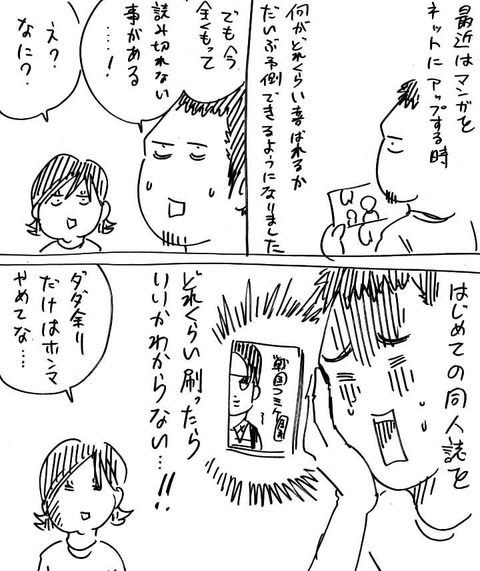 最近はマンガを
ネットにアップする時
何がどれくらい喜ばれるか
だいぶ予測できるようになりました
でも今
全くもって
読み切れない
事がある
……!
え?
なに?
はじめての同人誌を
どれくらい刷ったら
いいかわからない…!!
戦国コミケ
ダダ余り
だけはホンマ
やめてな…